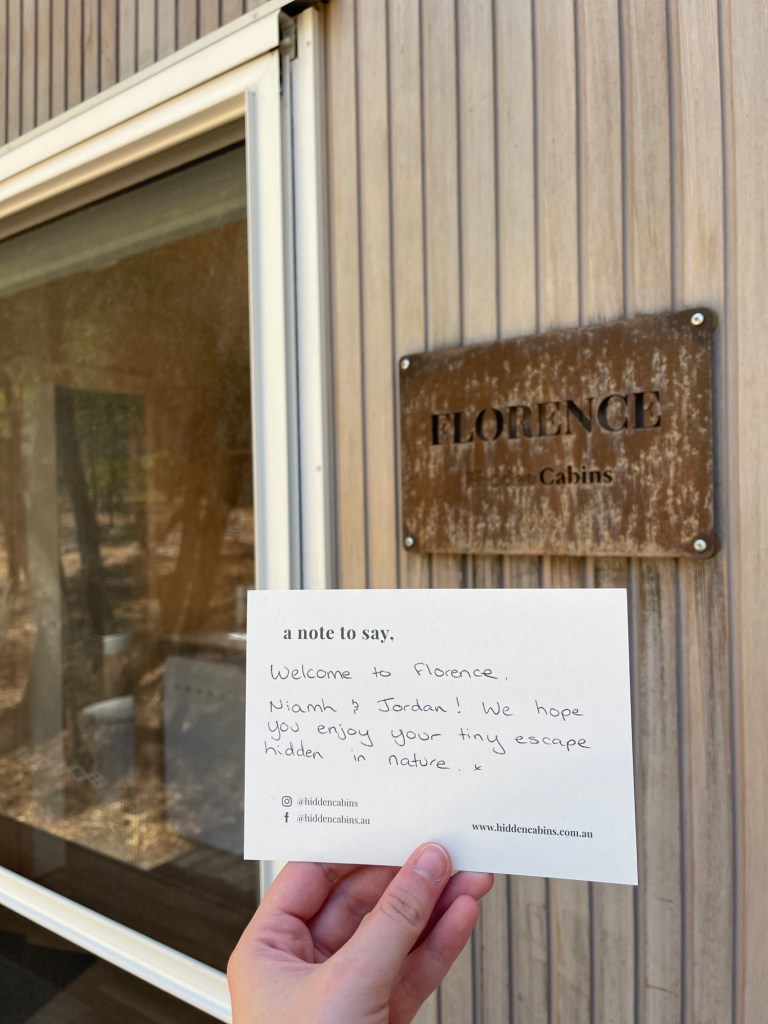 FLORENCE
Hidden Cabins
a note to say,
Welcome to Florence,
Niamh & Jordan! We hope
you enjoy your tiny escape
hidden in nature. x
@hiddencabins
@hiddencabins.au
www.hiddencabins.com.au